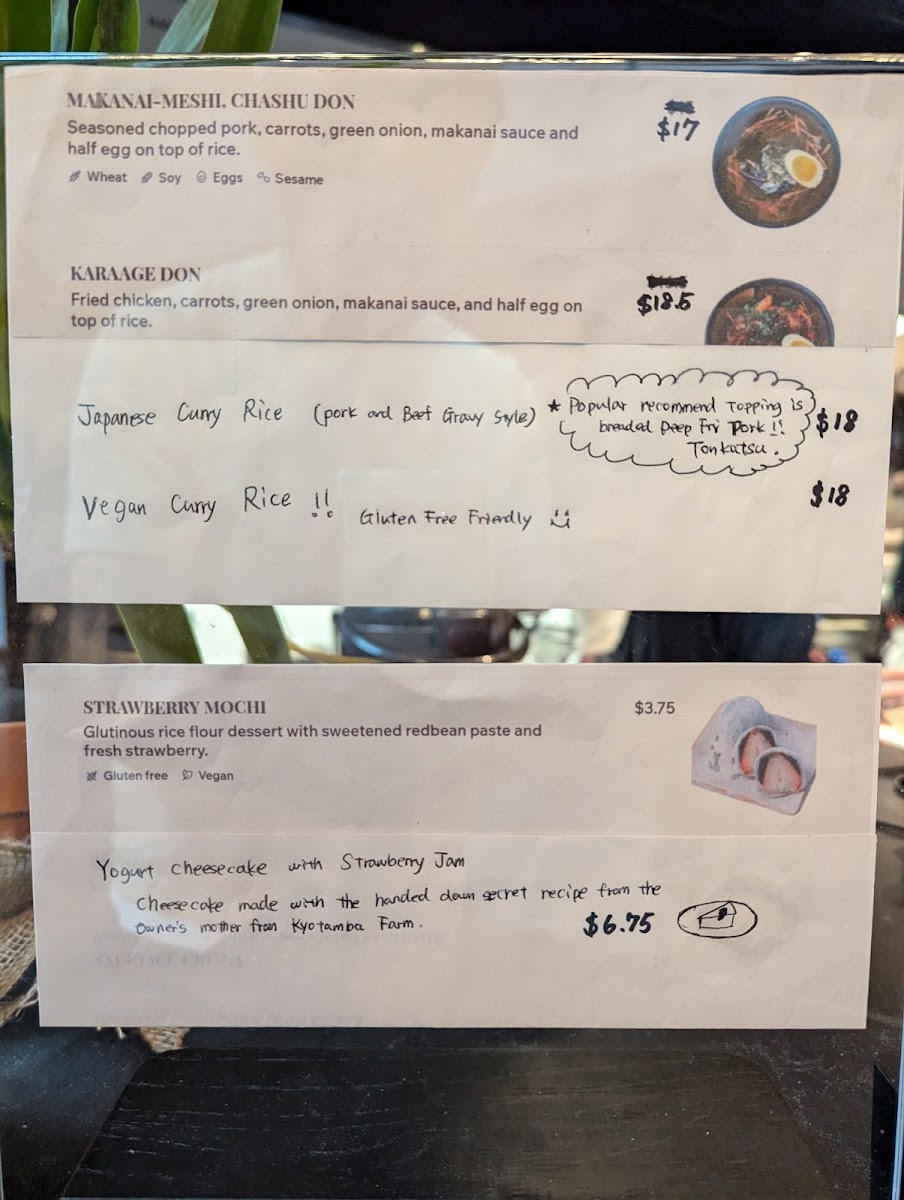 MAKANAI-MESHI, CHASHU DON
$17
Seasoned chopped pork, carrots, green onion, makanai sauce and
half egg on top of rice.
Wheat Soy Eggs Sesame
KARAAGE DON
$18.5
Fried chicken, carrots, green onion, makanai sauce, and half egg on
top of rice.
Japanese Curry Rice (pork and Beef Gravy Style)
★ Popular recommend Topping is
breaded Deep Fri Pork !!
Tonkatsu.
$18
Vegan Curry Rice !! Gluten Free Friendly
$18
STRAWBERRY MOCHI $3.75
Glutinous rice flour dessert with sweetened redbean paste and
fresh strawberry.
Gluten free Vegan
Yogurt cheesecake with Strawberry Jam
Cheesecake made with the handed down secret recipe from the
Owner's mother from Kyotamba Farm.
$6.75